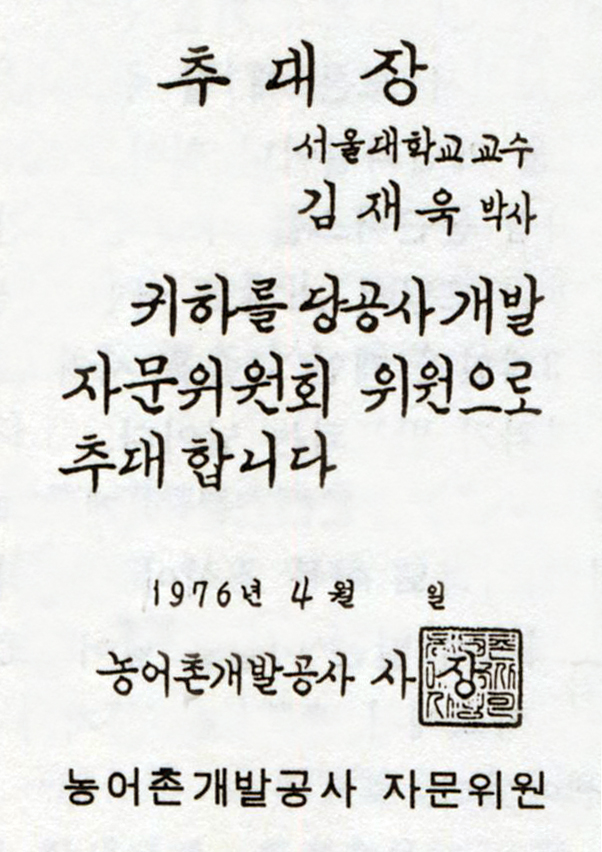 추대장
서울대학교 교수
김재욱 박사
귀하를 당공사 개발
자문위원회 위원으로
추대합니다
1976년 4월 일
농어촌개발공사 사장
농어촌개발공사 자문위원